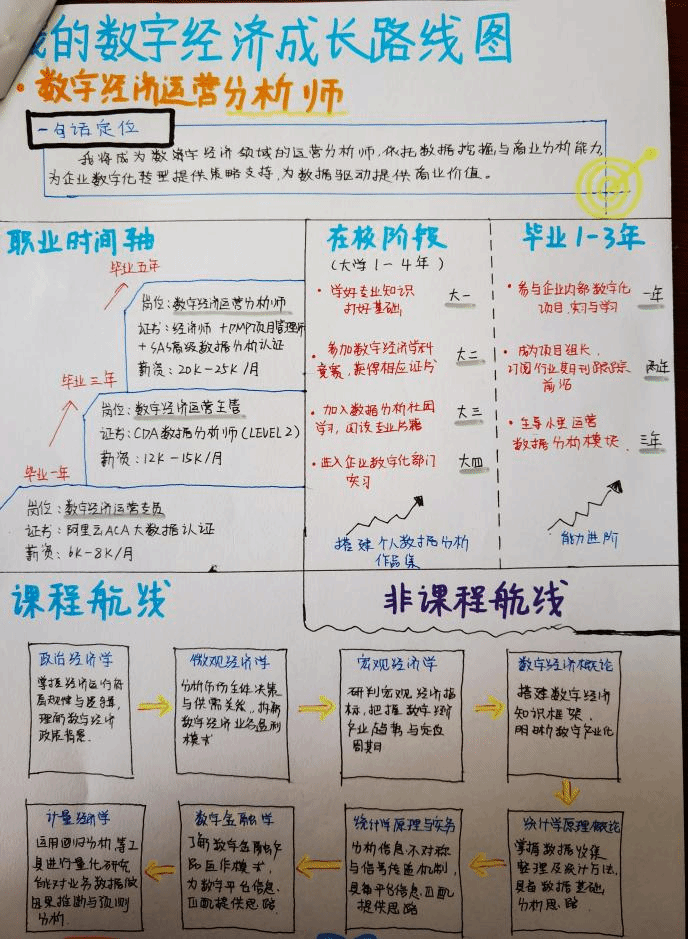 的数字经济成长路线图
·数字经济运营分析师
一句话定位
我将成为数字经济领域的运营分析师,依托数据挖掘与商业分析能力,
为企业数字化转型提供策略支持,为数据驱动提供商业价值。
职业时间轴
毕业五年
岗位:数字经济运营分析师
证书:经济师+PMP项目管理师
+SAS高级数据分析认证
薪资:20K-25K/月
毕业三年
岗位:数字经济运营主管
证书:CDA数据分析师(LEVEL2)
薪资:12K-15K/月
毕业一年
岗位:数字经济运营专员
证书:阿里云ACA大数据认证
薪资:6K-8K/月
在校阶段
(大学1-4年)
·学好专业知识
打好基础
大一
·参加数字经济学科
竞赛,获得相应证书
大二
·加入数据分析社团
学习,阅读专业书籍
大三
·进入企业数字化部门
实习
大四
搭建个人数据分析
作品集
毕业1-3年
·参与企业内部数字化
项目,实习与学习
一年
·成为项目组长,
订阅行业期刊跟踪
前沿
两年
·主导小型运营
数据分析模块
三年
能力进阶
课程航线
非课程航线
政治经济学
掌握经济运行的
理解数字经济
政策背景.
微观经济学
分析市场主体决策
与供需关系,
数字经济业务盈利
模式
宏观经济学
研判宏观经济指
标,把握数字经济
产业趋势与定位
周期
数字经济概论
搭建数字经济
知识框架,
明晰数字产业化
统计学原理概论
掌握数据收集
整理及统计方法,
具备数据基础
分析思路
统计学原理与实务
分析信息不对称
与信号传递机制,
具备平台信息匹配
提供思路
数字金融学
了解数字金融产
品运作模式,
为数字平台信息
匹配提供思路
计量经济学
运用回归分析等工
具进行量化研究,
能对业务数据做
因果推断与预测
分析.